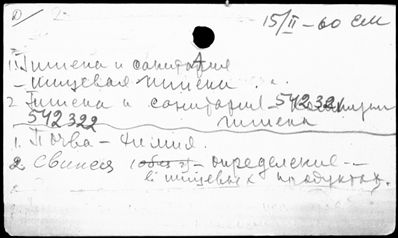 D/ 2.
15/II-60 ЕМ
1. Гигиена и санитария
- пищевая гигиена
2 Гигиена и санитария - 542321
542322 гигиена
1. Почва - химия.
2. Свинец - определение -
в пищевых продуктах.